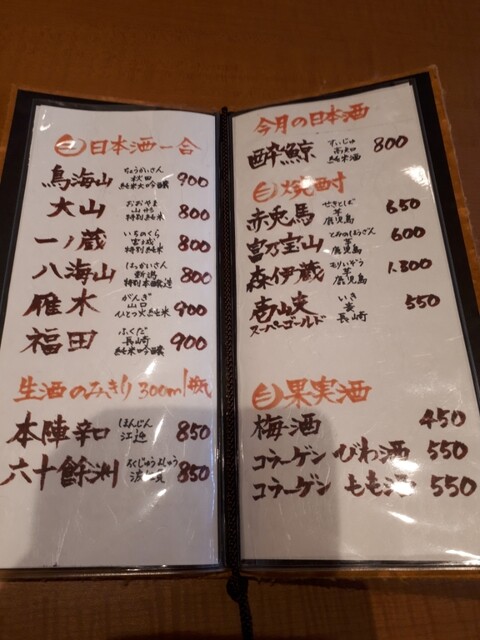 日本酒一合
鳥海山 ちょうかいさん 秋田 純米大吟醸 900
大山 おおやま 山形 特別純米 800
一ノ蔵 いちのくら 宮城 特別純米 800
八海山 はっかいさん 新潟 特別本醸造 800
雁木 がんぎ 山口 ひとつ火純米 900
福田 ふくだ 長崎 純米吟醸 900
生酒のみきり300ml瓶
本陣辛口 ほんじん 江迎 850
六十餘洲 ろくじゅうよしゅう 波佐見 850
今月の日本酒
酔鯨 すいげい 高知 純米酒 800
焼酎
赤兎馬 せきとば 芋 鹿児島 650
富乃宝山 とみのほうざん 芋 鹿児島 600
森伊蔵 もりいぞう 芋 鹿児島 1.300
壱岐 いき 麦 長崎 550
スーパーゴールド
果実酒
梅酒 450
コラーゲン びわ酒 550
コラーゲン もも酒 550